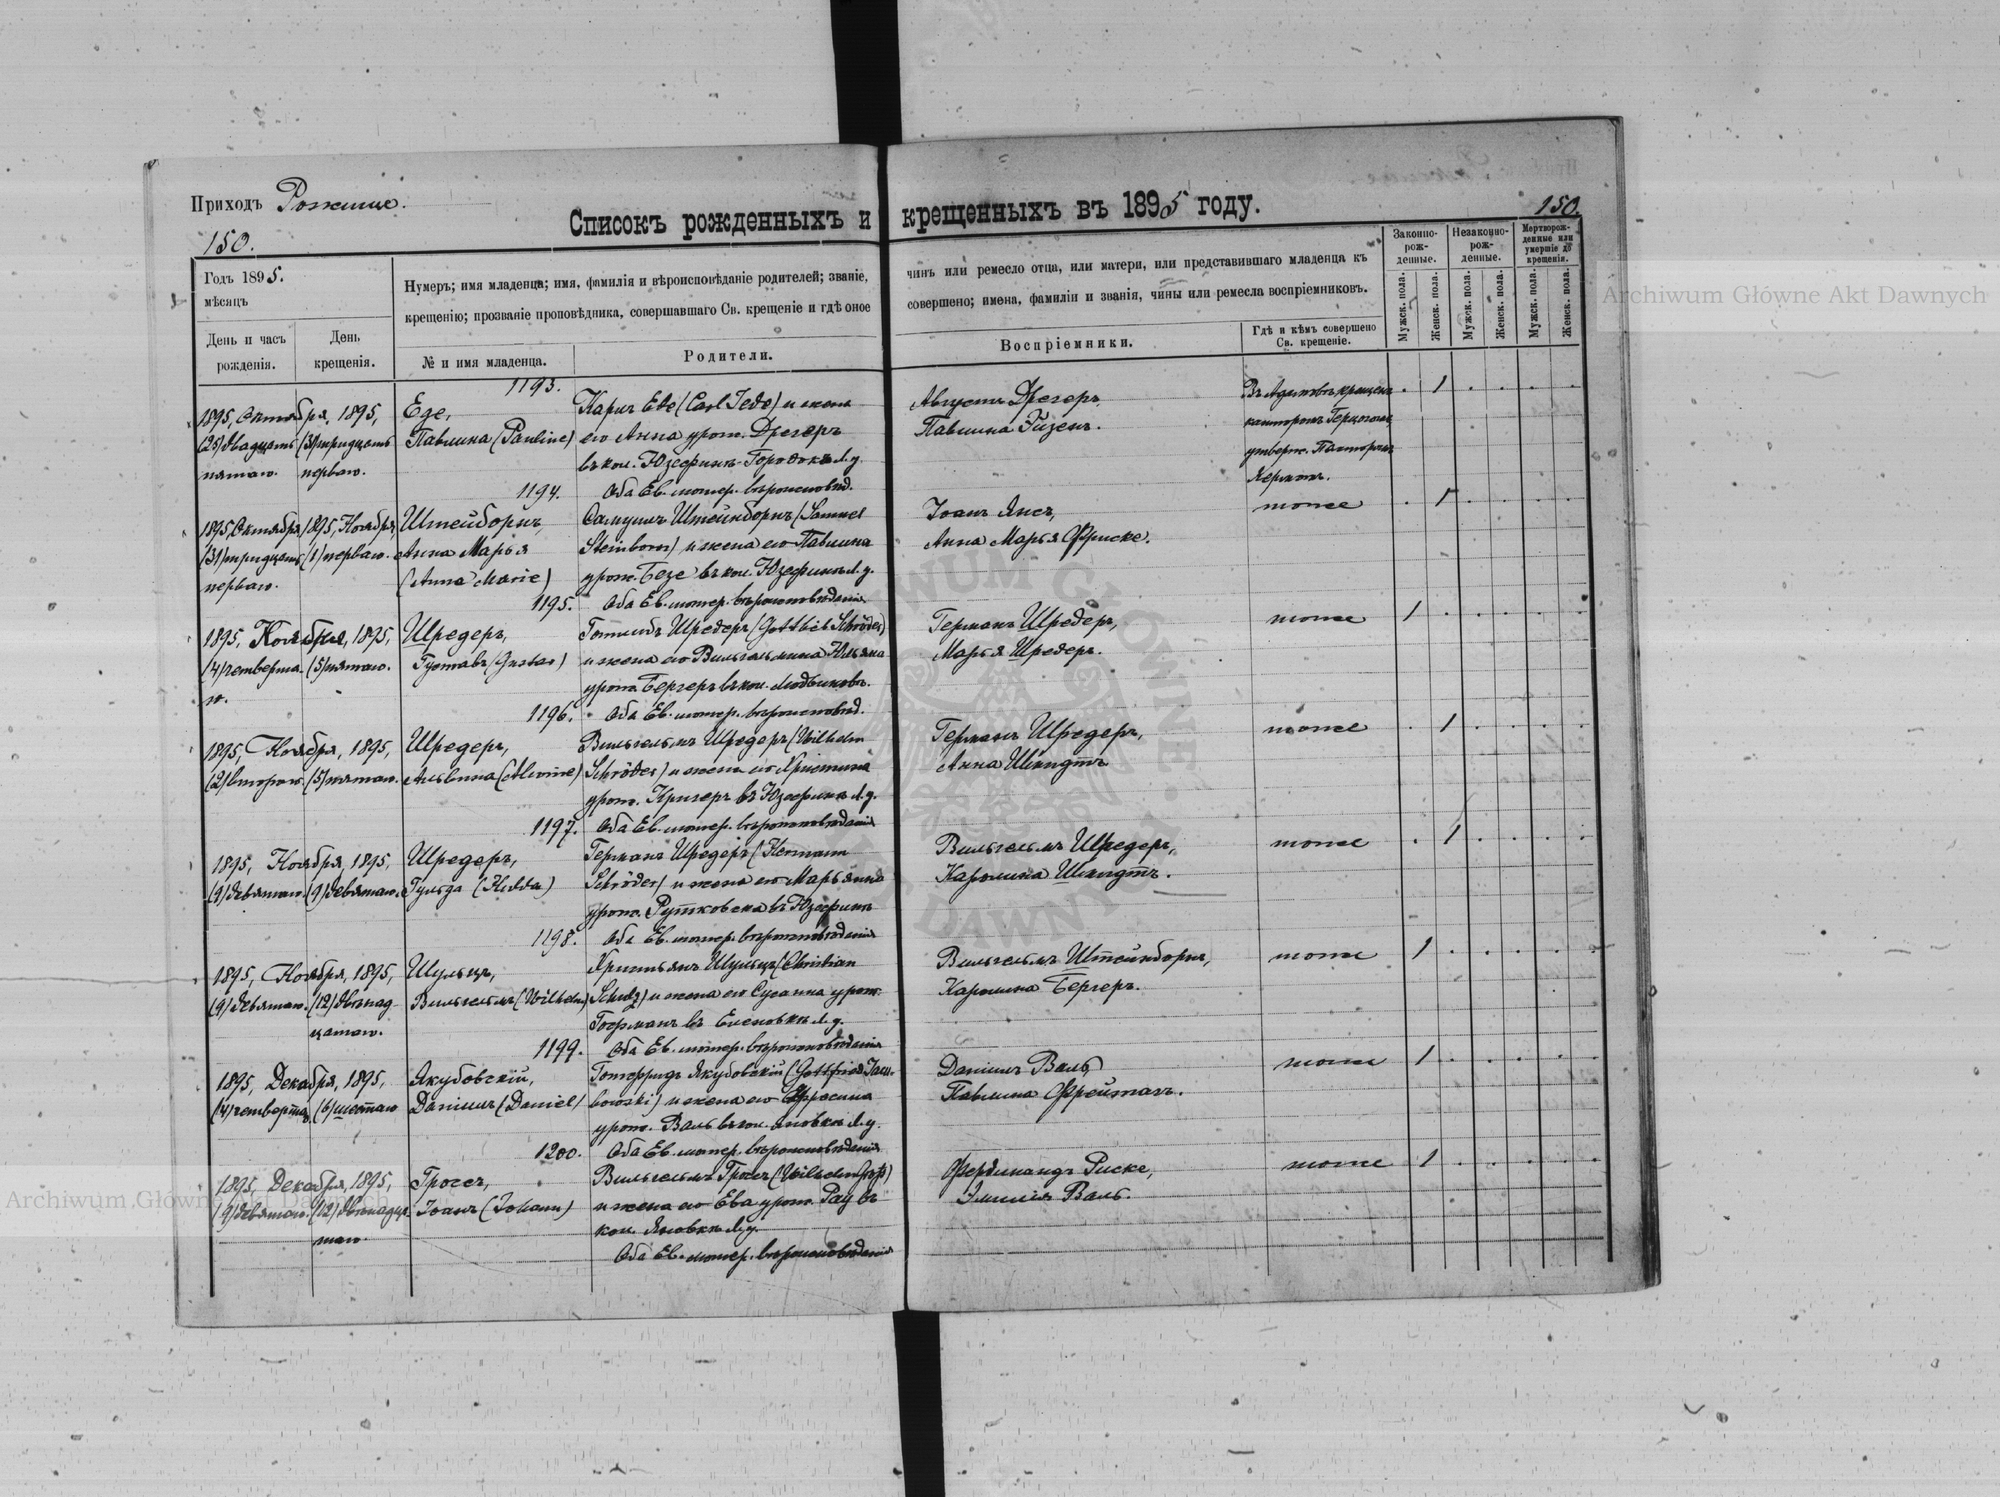 Приходъ Рожище.
Списокъ рожденныхъ и крещенныхъ въ 1895 году.
150.
150.
Годъ 1895.
мѣсяцъ
День и часъ рожденія.
День крещенія.
Нумеръ; имя младенца; имя, фамилія и вѣроисповѣданіе родителей; званіе, чинъ или ремесло отца, или матери, или представившаго младенца къ
крещенію; прозваніе проповѣдника, совершавшаго Св. крещеніе и гдѣ оное совершено; имена, фамиліи и званія, чины или ремесла воспріемниковъ.
№ и имя младенца.
Родители.
Воспріемники.
Гдѣ и кѣмъ совершено Св. крещеніе.
Законно-рож-денные.
Незаконно-рож-денные.
Мертворож-денные или умершіе до крещенія.
Мужск. пола.
Женск. пола.
Мужск. пола.
Женск. пола.
Мужск. пола.
Женск. пола.
1193.
1895, Октября, 1895,
(25) двадцать (31) тридцать
пятаго. перваго.
Еде,
Павлина (Pauline)
Карлъ Еде (Carl Jede) и жена
его Анна урож. Дрегеръ
въ кол. Юзефинъ-Городокъ л. у.
Оба Ев. лютер. вѣроисповѣд.
Августъ Дрегеръ,
Павлина Эйзенъ.
канторомъ
утверж. Пасторомъ
Керномъ.
1
1194.
1895, Октября, 1895, Ноября,
(31) тридцать (1) перваго.
перваго.
Штейборнъ,
Анна Марья
(Anna Marie)
Самуилъ Штейнборнъ (Samuel
Steinborn) и жена его Павлина
урож. Безе въ кол. Юзефинъ л. у.
Оба Ев. лютер. вѣроисповѣданія
Іоанъ Янсъ,
Анна Марья Фриске.
тоже
1
1195.
1895, Ноября, 1895,
(4) четверта- (5) пятаго.
го.
Шредеръ,
Густавъ (Gustav)
Готлибъ Шредеръ (Gottlieb Schröder)
и жена его Вильгельмина Юльяна
урож. Бергеръ въ кол.
Оба Ев. лютер. вѣроисповѣд.
Германъ Шредеръ,
Марья Шредеръ.
тоже
1
1196.
1895, Ноября, 1895,
(2) втораго (5) пятаго.
Шредеръ,
Альвина (Alwine)
Вильгельмъ Шредеръ (Wilhelm
Schröder) и жена его Христина
урож. Кригеръ въ Юзефинъ л. у.
Оба Ев. лютер. вѣроисповѣданія
Германъ Шредеръ,
Анна Шмидтъ
тоже
1
1197.
1895, Ноября, 1895,
(9) девятаго. (9) девятаго.
Шредеръ,
Гульда (Hulda)
Германъ Шредеръ (Hermann
Schröder) и жена его Марьянна
урож. Рутковска въ Юзефинъ
Оба Ев. лютер. вѣроисповѣданія
Вильгельмъ Шредеръ,
Каролина Шмидтъ.
тоже
1
1198.
1895, Ноября, 1895,
(9) девятаго. (12) двѣнад-
цатаго.
Шульцъ,
Вильгельмъ (Wilhelm)
Христьянъ Шульцъ (Christian
Schulz) и жена его Сусанна урож.
Гофманъ въ Еленовкѣ л. у.
Оба Ев. лютер. вѣроисповѣданія
Вильгельмъ Штейнборнъ,
Каролина Бергеръ.
тоже
1
1199.
1895, Декабря, 1895,
(4) четвертаго (6) шестаго
Якубовскій,
Даніилъ (Daniel)
Готфридъ Якубовскій (Gottfried Jacu-
bowski) и жена его
урож. Валь въ кол. Яновкѣ л. у.
Оба Ев. лютер. вѣроисповѣданія
Даніилъ Валь
Павлина Фрейтагъ.
тоже
1
1200.
1895, Декабря, 1895,
(9) девятаго. (12) двѣнадца-
таго.
Гросъ,
Іоанъ (Johann)
Вильгельмъ Гросъ (Wilhelm Groß)
и жена его Ева урож. Рау въ
кол. Яновкѣ л. у.
Оба Ев. лютер. вѣроисповѣданія
Фердинандъ Риске,
Эмилія Валь.
тоже
1
Archiwum Główne Akt Dawnych
Archiwum Główne Akt Dawnych